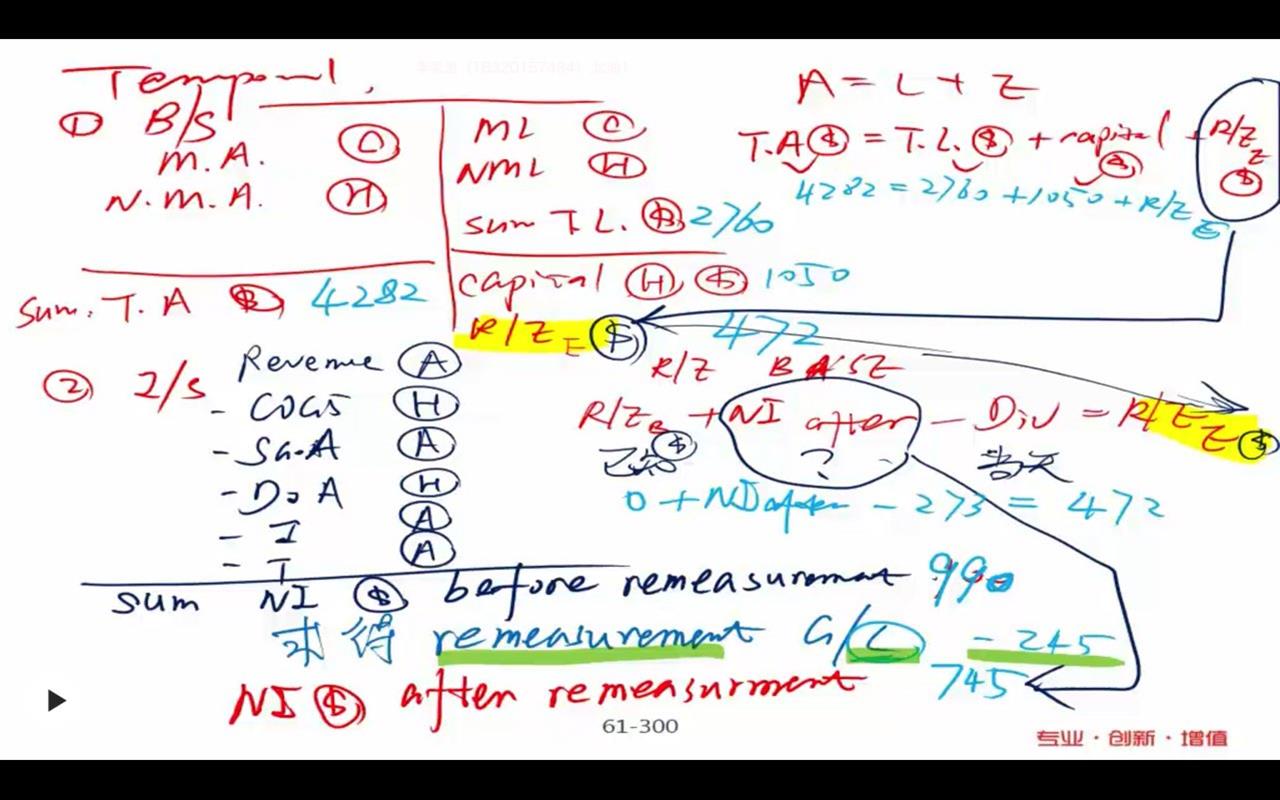 Temporal.
① B/S
M.A. Ⓒ
N.M.A. Ⓗ
sum. T.A ($) 4282
ML Ⓒ
NML Ⓗ
sum T L. ($) 2760
capital Ⓗ ($) 1050
R/E E ($) 472
A = L + E
T.A ($) = T.L. ($) + capital ($) + R/E E ($)
4282 = 2760 + 1050 + R/E E
② I/S
Revenue Ⓐ
- COGS Ⓗ
- SG.A Ⓐ
- D.A Ⓗ
- I Ⓐ
- T Ⓐ
R/E BASE
R/E B ($) + NI after - Div = R/E E ($)
已知 ? 当天
0 + NI after - 273 = 472
sum NI ($) before remeasurement 990
求得 remeasurement G/L -245
NI ($) after remeasurment 745
61-300
专业·创新·增值